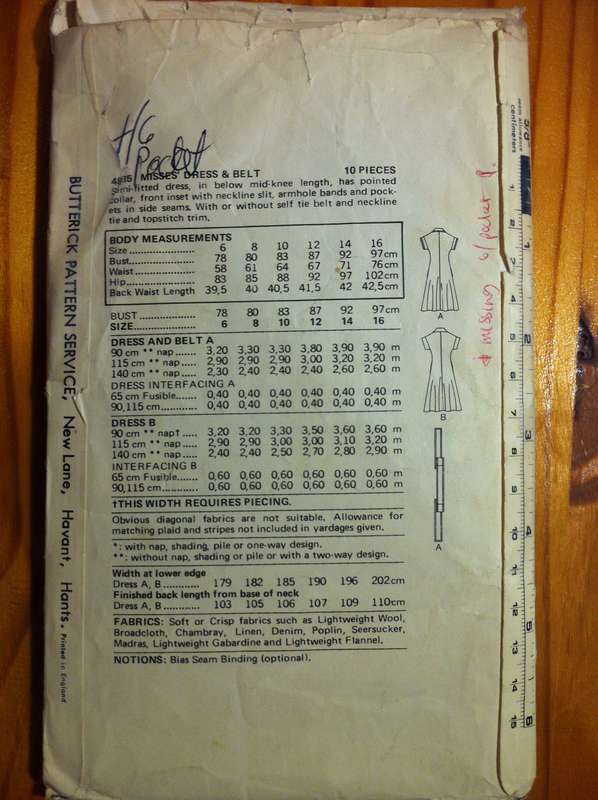 H/6
Pocket
4915 MISSES' DRESS & BELT 10 PIECES
Semi-fitted dress, in below mid-knee length, has pointed
collar, front inset with neckline slit, armhole bands and pock-
ets in side seams. With or without self tie belt and neckline
tie and topstitch trim.
BODY MEASUREMENTS
Size 6 8 10 12 14 16
Bust 78 80 83 87 92 97cm
Waist 58 61 64 67 71 76cm
Hip 83 85 88 92 97 102cm
Back Waist Length 39,5 40 40,5 41,5 42 42,5cm
BUST 78 80 83 87 92 97cm
SIZE 6 8 10 12 14 16
DRESS AND BELT A
90 cm ** nap 3,20 3,30 3,30 3,80 3,90 3,90 m
115 cm ** nap 2,90 2,90 2,90 3,00 3,20 3,20 m
140 cm ** nap 2,30 2,40 2,40 2,40 2,60 2,60 m
DRESS INTERFACING A
65 cm Fusible 0,40 0,40 0,40 0,40 0,40 0,40 m
90,115 cm 0,40 0,40 0,40 0,40 0,40 0,40 m
DRESS B
90 cm ** nap† 3,20 3,20 3,30 3,50 3,60 3,60 m
115 cm ** nap 2,90 2,90 3,00 3,00 3,10 3,20 m
140 cm ** nap 2,40 2,40 2,50 2,70 2,80 2,90 m
INTERFACING B
65 cm Fusible 0,60 0,60 0,60 0,60 0,60 0,60 m
90,115 cm 0,60 0,60 0,60 0,60 0,60 0,60 m
†THIS WIDTH REQUIRES PIECING.
Obvious diagonal fabrics are not suitable, Allowance for
matching plaid and stripes not included in yardages given.
*: with nap, shading, pile or one-way design.
**: without nap, shading or pile or with a two-way design.
Width at lower edge
Dress A, B 179 182 185 190 196 202cm
Finished back length from base of neck
Dress A, B 103 105 106 107 109 110cm
FABRICS: Soft or Crisp fabrics such as Lightweight Wool,
Broadcloth, Chambray, Linen, Denim, Poplin, Seersucker,
Madras, Lightweight Gabardine and Lightweight Flannel.
NOTIONS: Bias Seam Binding (optional).
A
B
A
BUTTERICK PATTERN SERVICE, New Lane, Havant, Hants. Printed in England
missing 6/pocket
5/8
seam allowance
centimeters
1 2 3 4 5 6 7 8 9 10 11 12 13 14 15
1 2 3 4 5 6